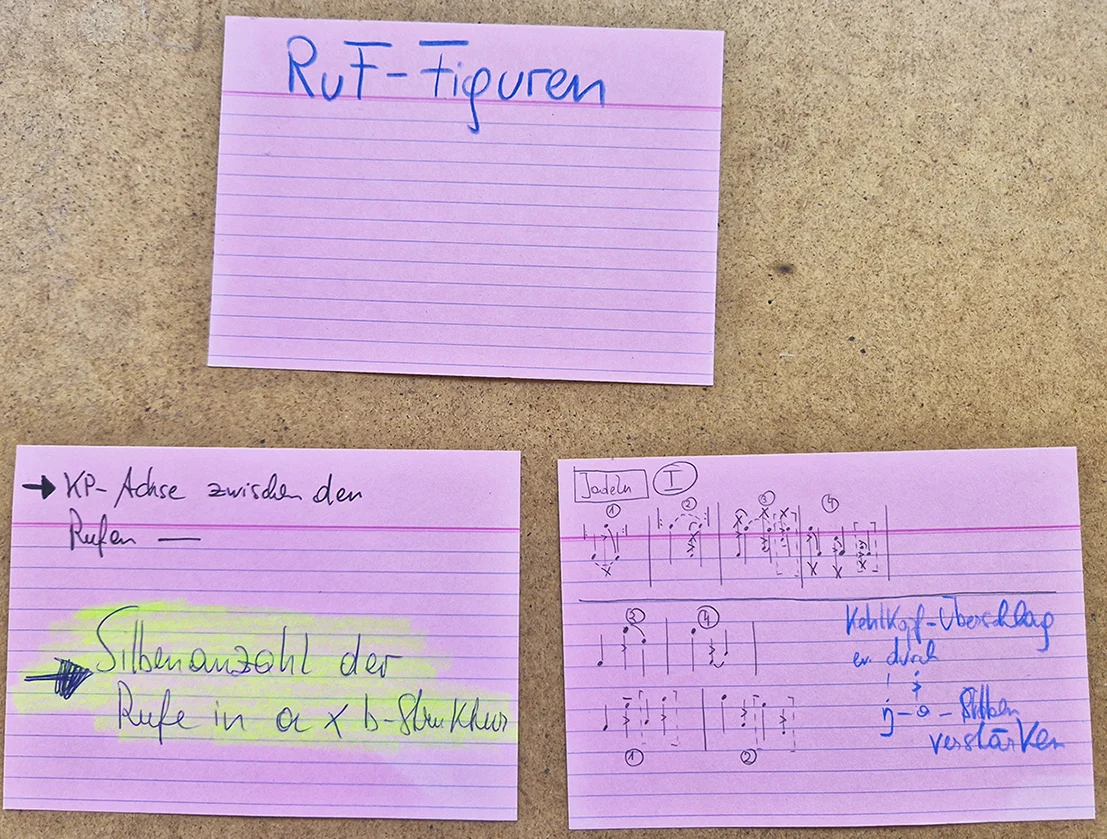 RuF-Figuren
→ KP-Achse zwischen den
Rufen —
→ Silbenanzahl der
Rufe in a x b-Struktur
Jodeln I
① ② ③ ④
③ ④
① ②
Kehlkopf-Überschlag
ev. durch
ŋ-o-Silben
verstärken